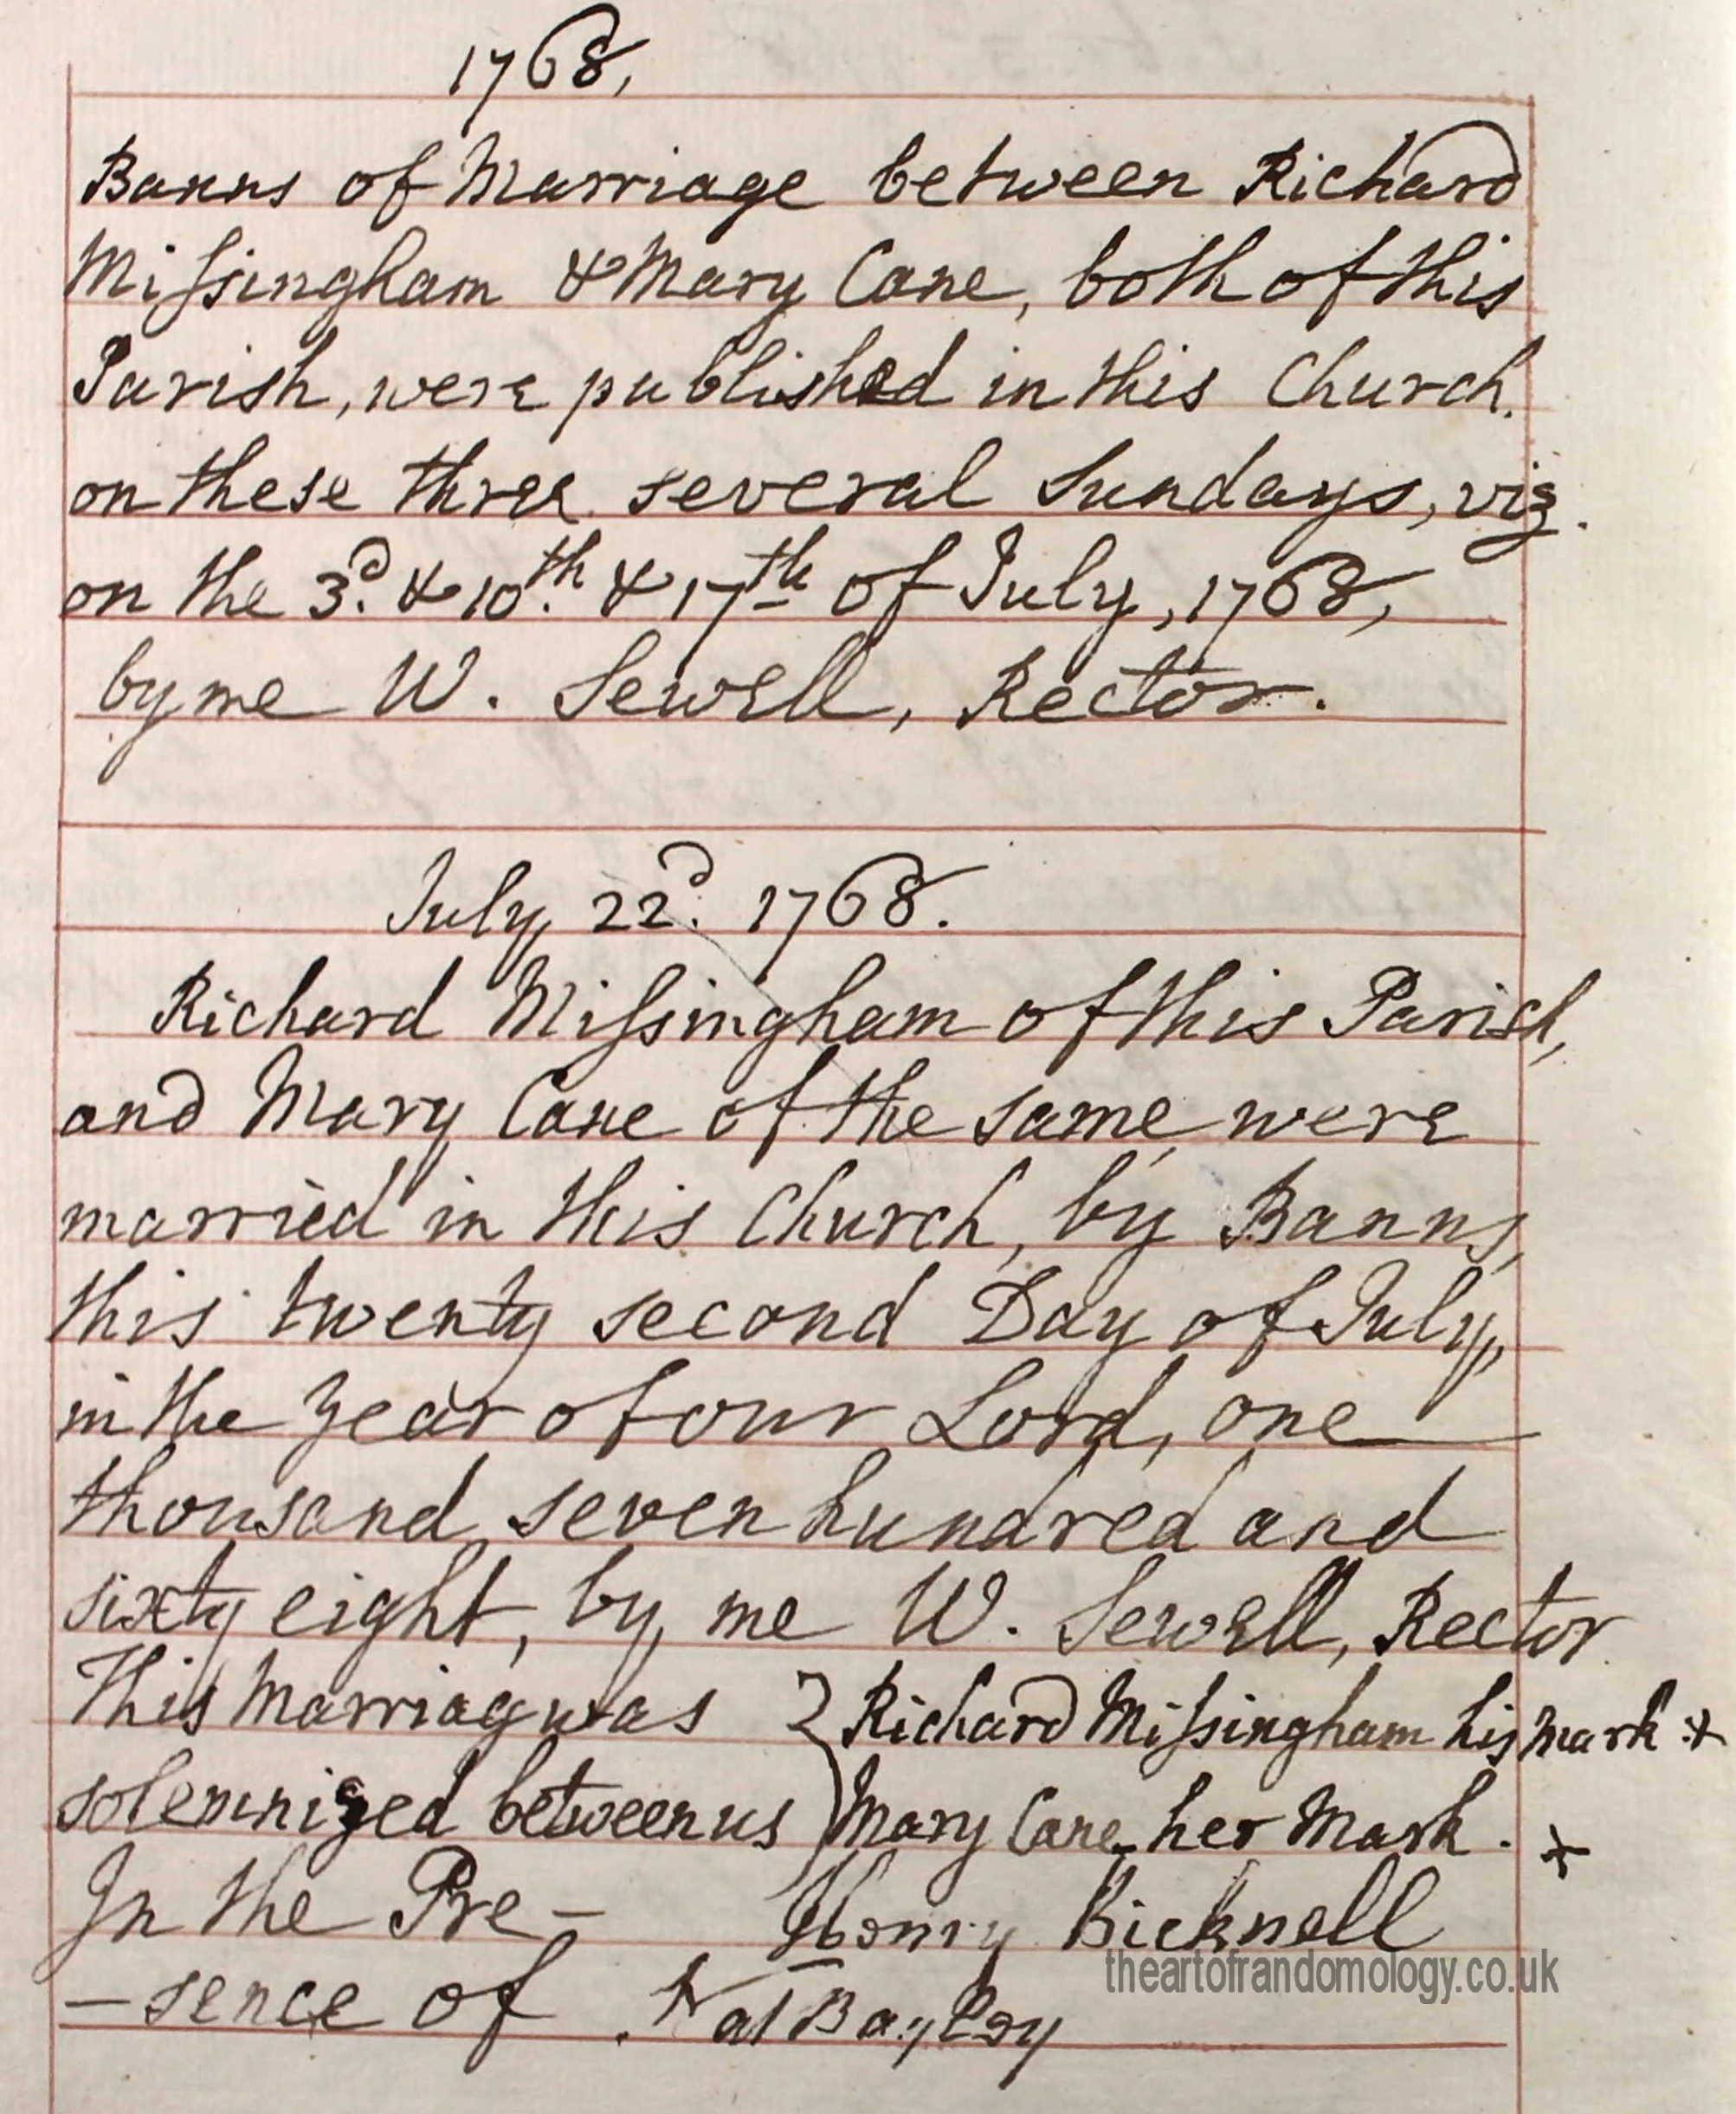 1768,
Banns of Marriage between Richard
Miſsingham & Mary Cane, both of this
Parish, were published in this Church.
on these three several Sundays, viz.
on the 3.d & 10.th & 17th of July, 1768,
by me W. Sewell, Rector.
July 22.d 1768.
Richard Miſsingham of this Parish,
and Mary Cane of the same, were
married in this Church, by Banns,
this twenty second Day of July,
in the Year of our Lord, one
thousand seven hundred and
sixty eight, by me W. Sewell, Rector
This Marriag was } Richard Miſsingham his mark +
solemnized between us } Mary Cane her Mark. +
In the Pre- Henry Bicknell
-sence of Nat Bayley
theartofrandomology.co.uk